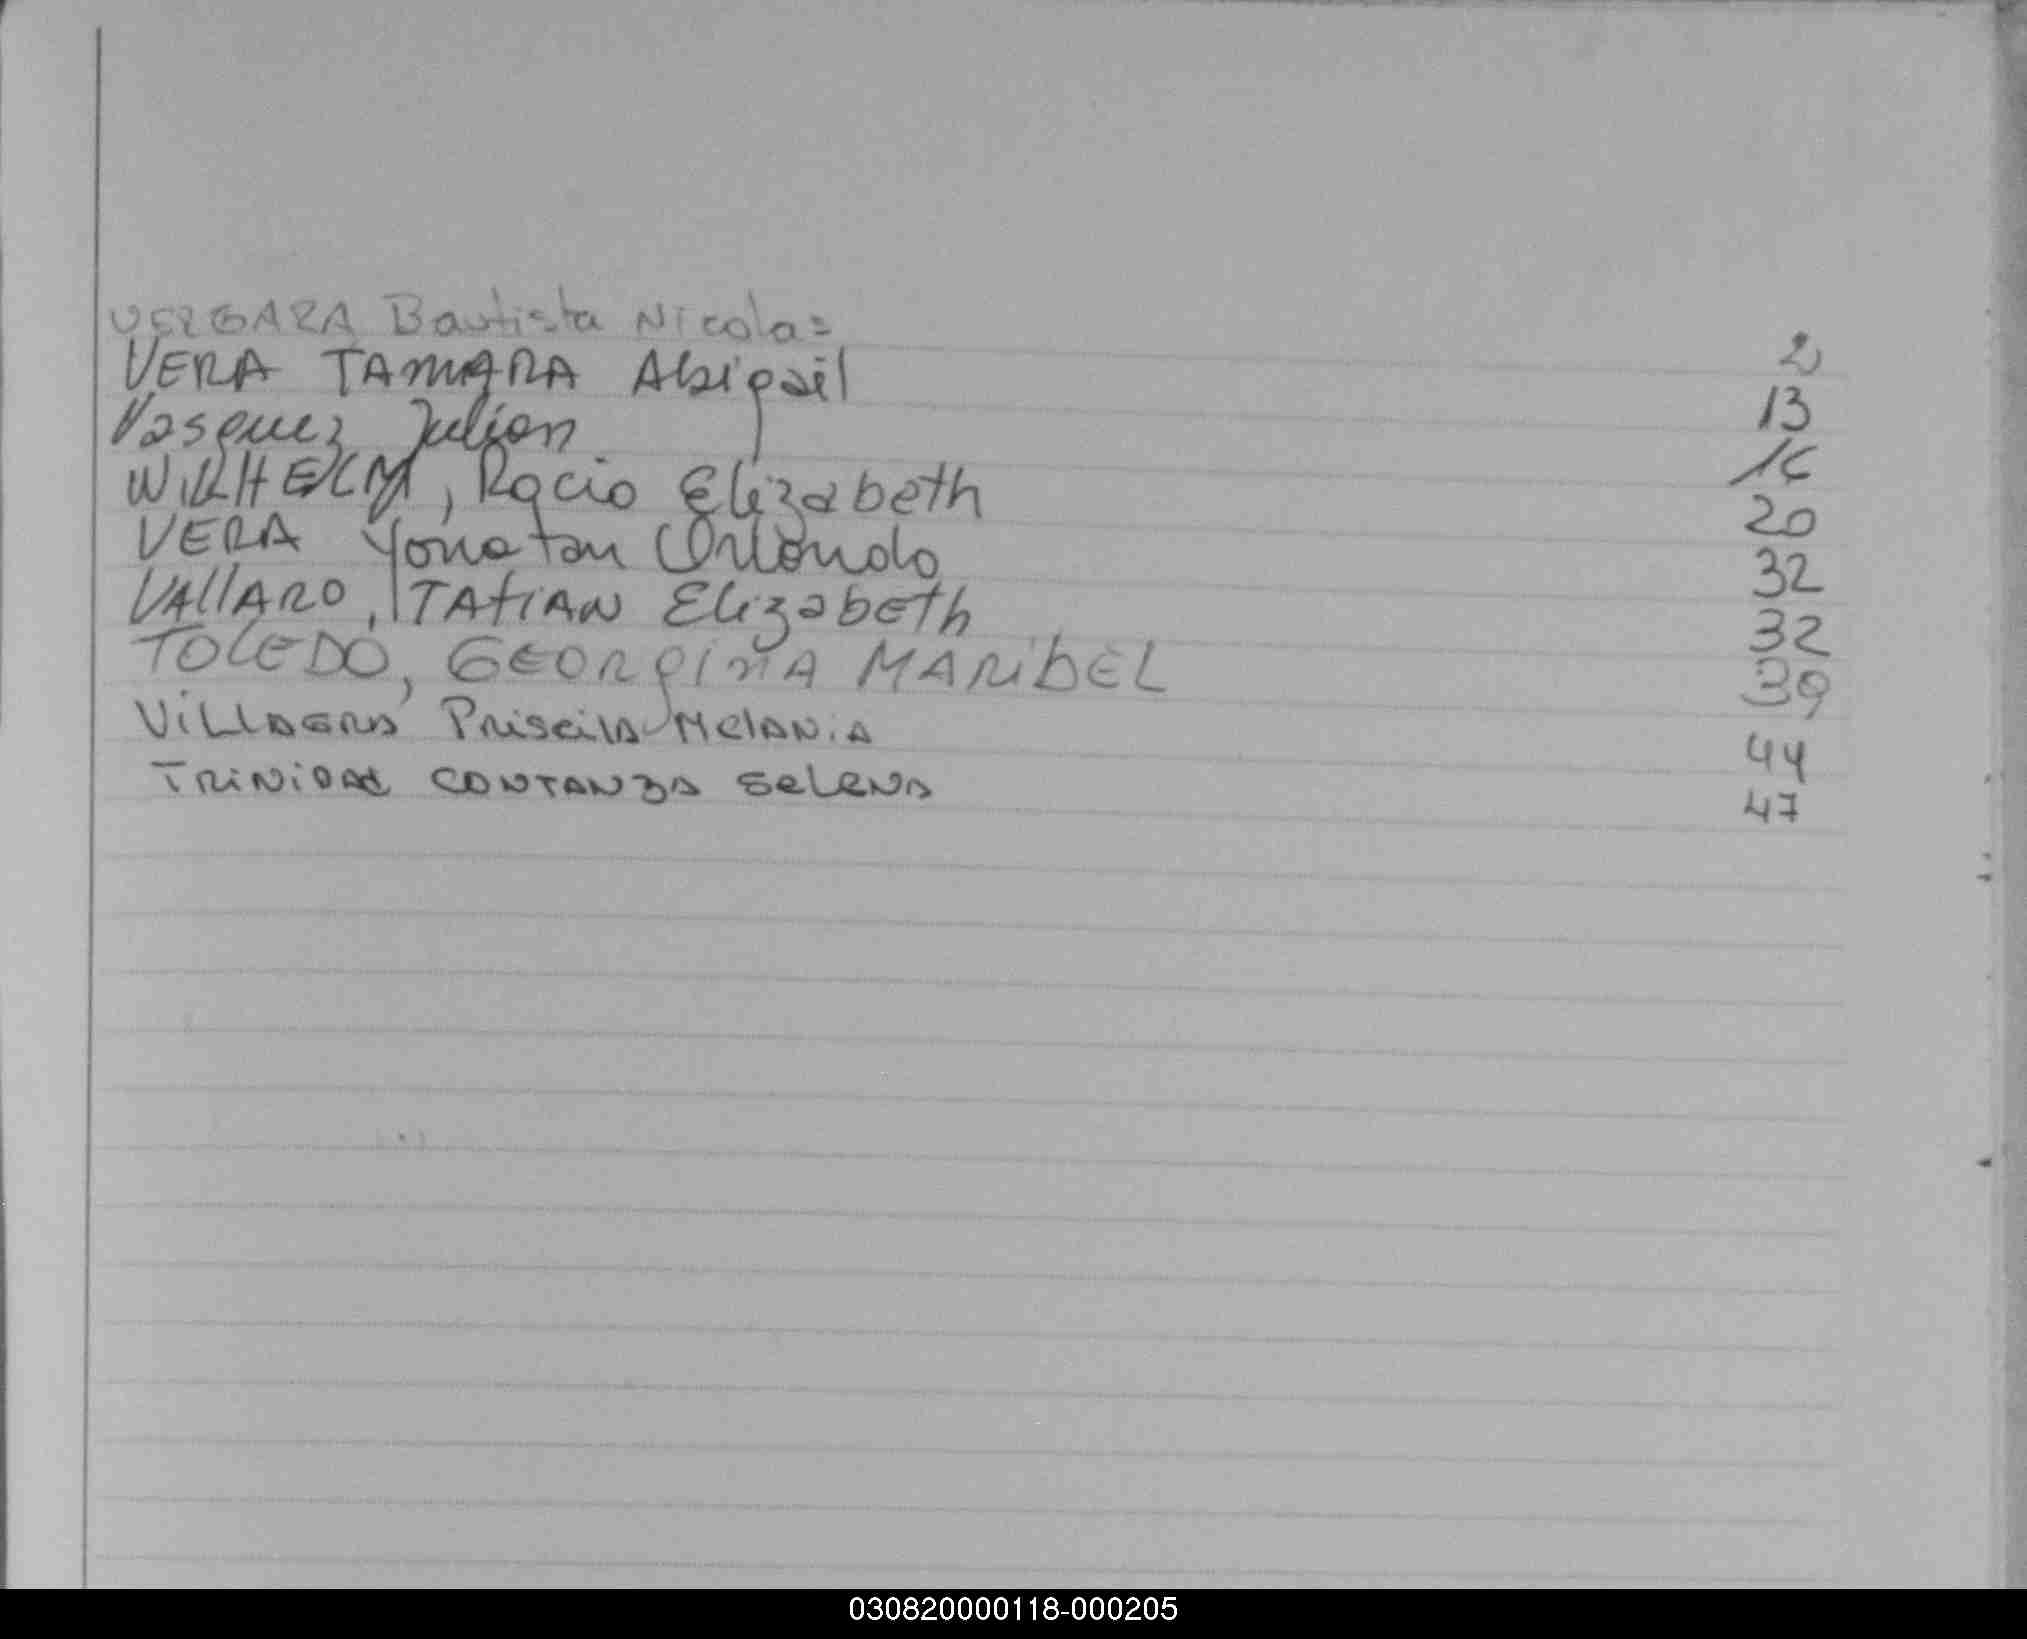 VERGARA Bautista Nicolas 2
VERA TAMARA Abigail 13
Vasquez Julian 16
WILHELM, Rocio Elizabeth 20
VERA Yonatan Orlando 32
VALLARO, TATIAN Elizabeth 32
TOLEDO, GEORGINA MARIBEL 39
VILLAGRA Priscila Melania 44
TRINIDAD CONTANZA Selena 47
030820000118-000205